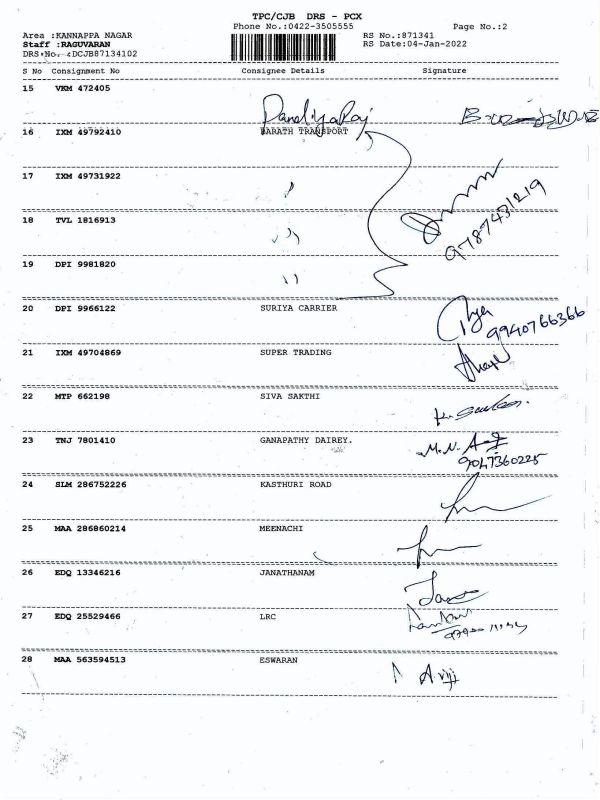 TPC/CJB DRS - PCX
Phone No.:0422-3505555
Page No.:2
Area :KANNAPPA NAGAR
RS No.:871341
Staff :RAGUVARAN
RS Date:04-Jan-2022
DRS No. :DCJB87134102
S No Consignment No Consignee Details Signature
15 VKM 472405
16 IXM 49792410 BARATH TRANSPORT
17 IXM 49731922
9787431219
18 TVL 1816913
19 DPI 9981820
20 DPI 9966122 SURIYA CARRIER
9940766366
21 IXM 49704869 SUPER TRADING
22 MTP 662198 SIVA SAKTHI
23 TNJ 7801410 GANAPATHY DAIREY. M.N.
9047360225
24 SLM 286752226 KASTHURI ROAD
25 MAA 286860214 MEENACHI
26 EDQ 13346216 JANATHANAM
27 EDQ 25529466 LRC
28 MAA 563594513 ESWARAN A.viji